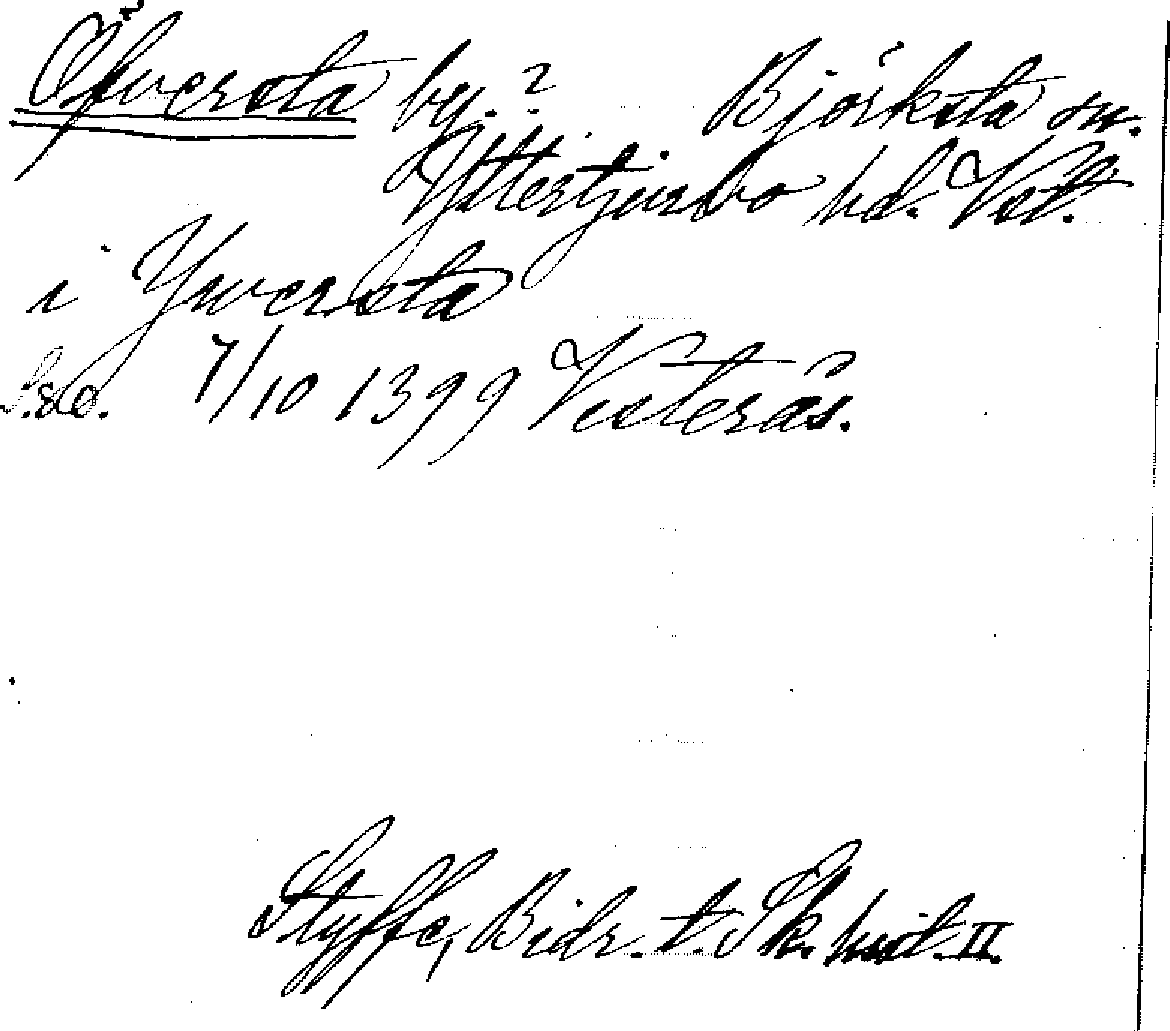 Öfwersta by.? Björksta sn.
Yttertjurbo hd. Vstl.
i Ywersta
S. d. 7/10 1399 Vesterås.
Styffe, Bidr. t. Sk. hist. II.